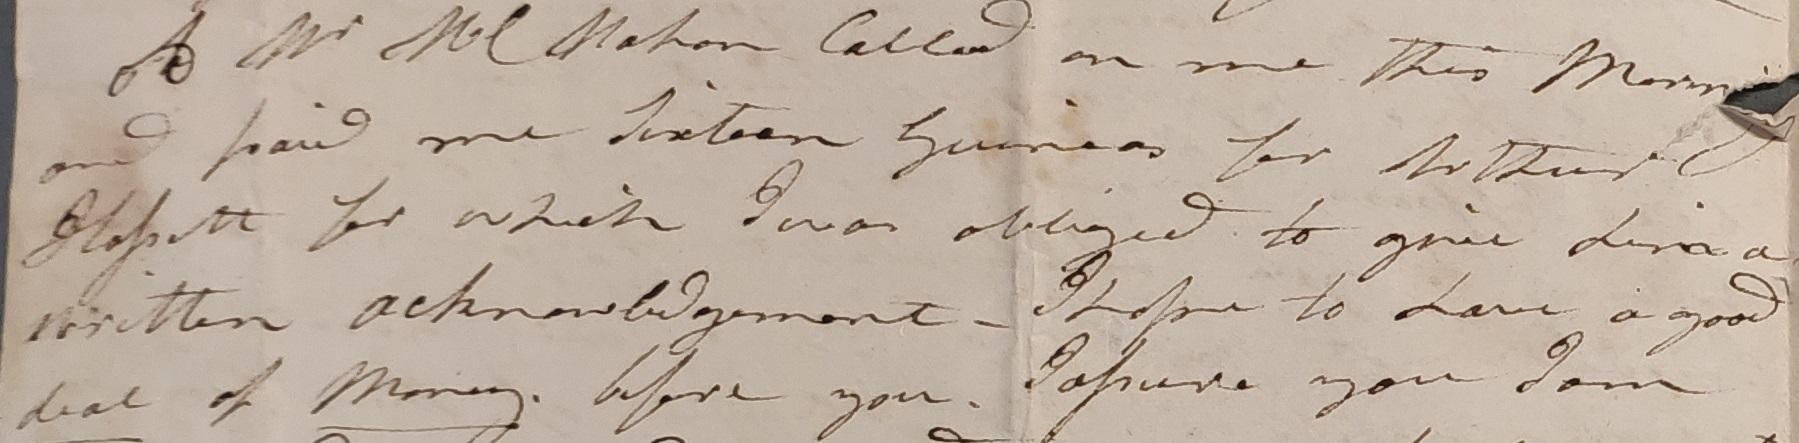 A Mr McMahon Called on me this Morni
and paid me Sixteen Guineas for Arthur
Blossett for which I was obliged to give him a
written acknowledgement - I hope to have a good
deal of Money before you. I assure you I am